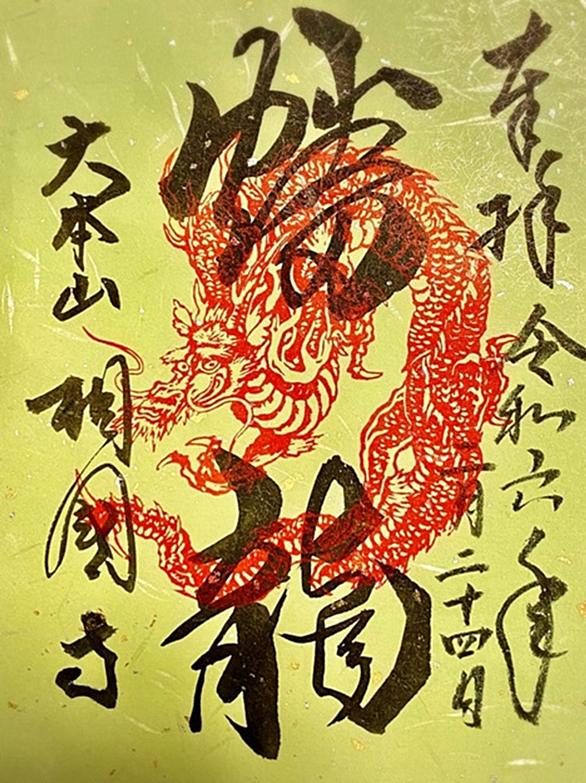 奉拝 令和六年
二月二十四日
蟠龍
大本山 相國寺